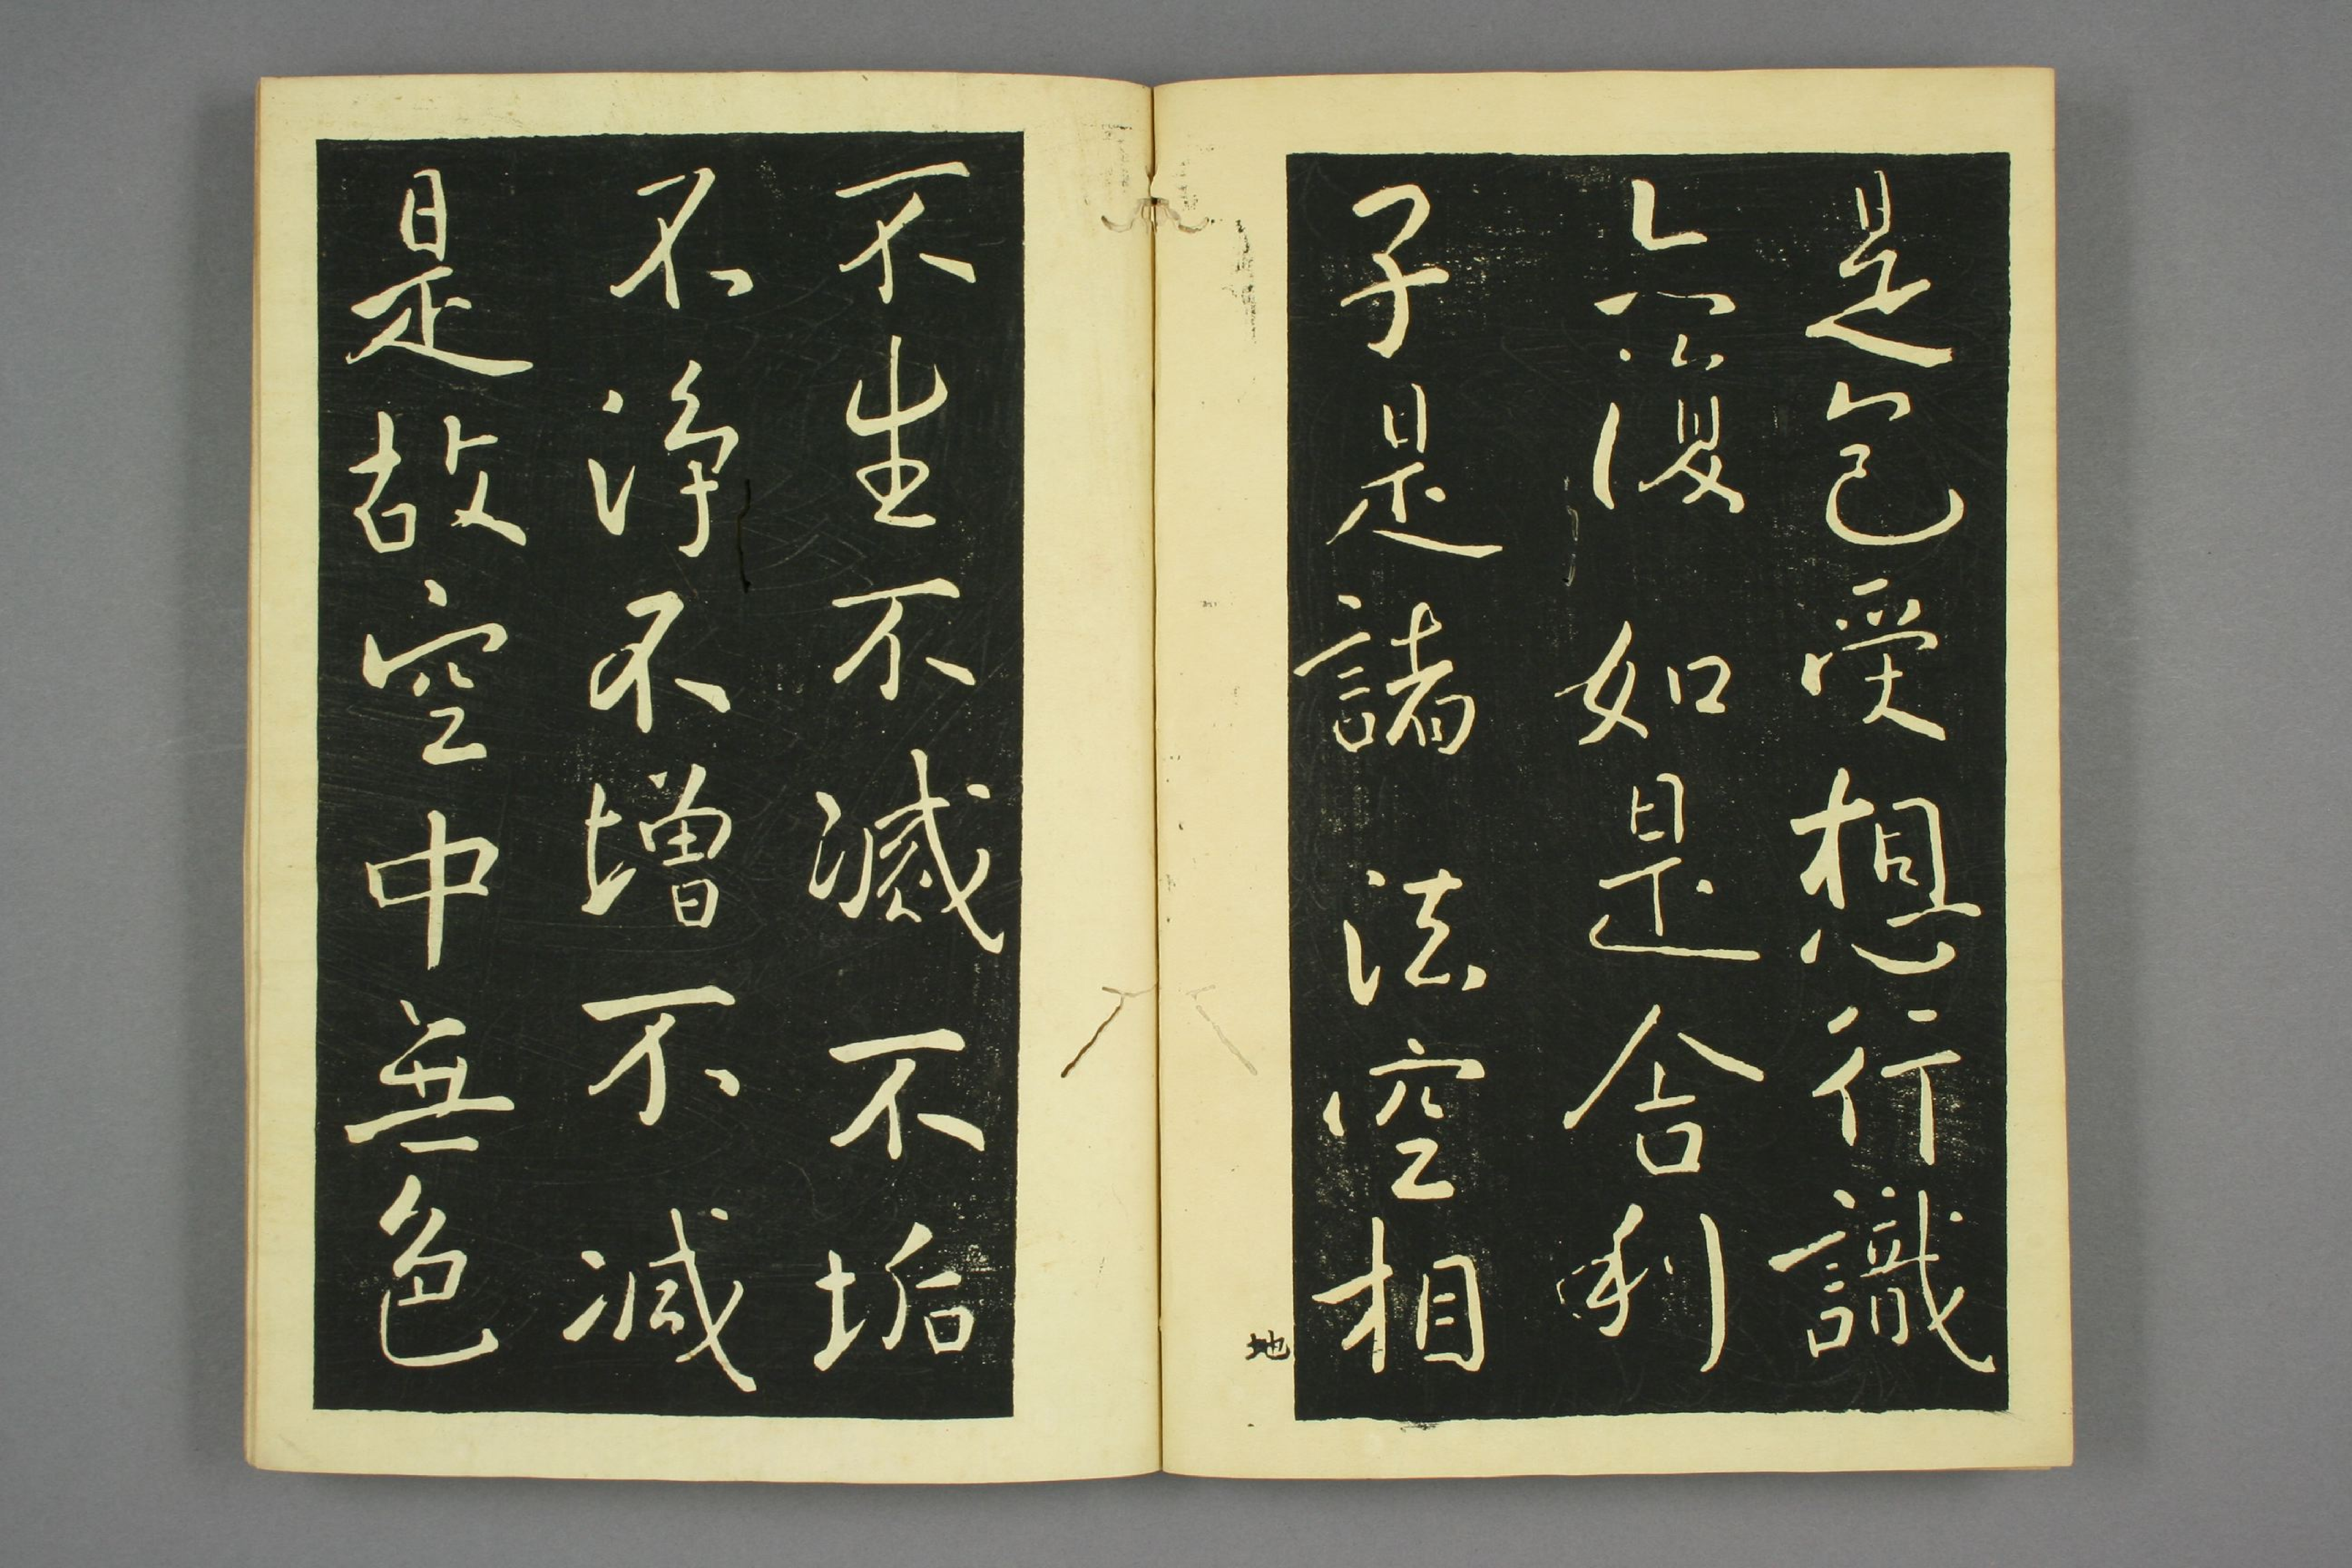 是色受想行識
亦復如是舍利
子是諸法空相
地
不生不滅不垢
不淨不增不減
是故空中無色